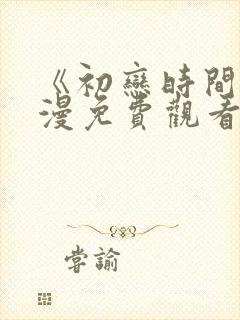 《初戀時間
漫免費觀看
嘗諭